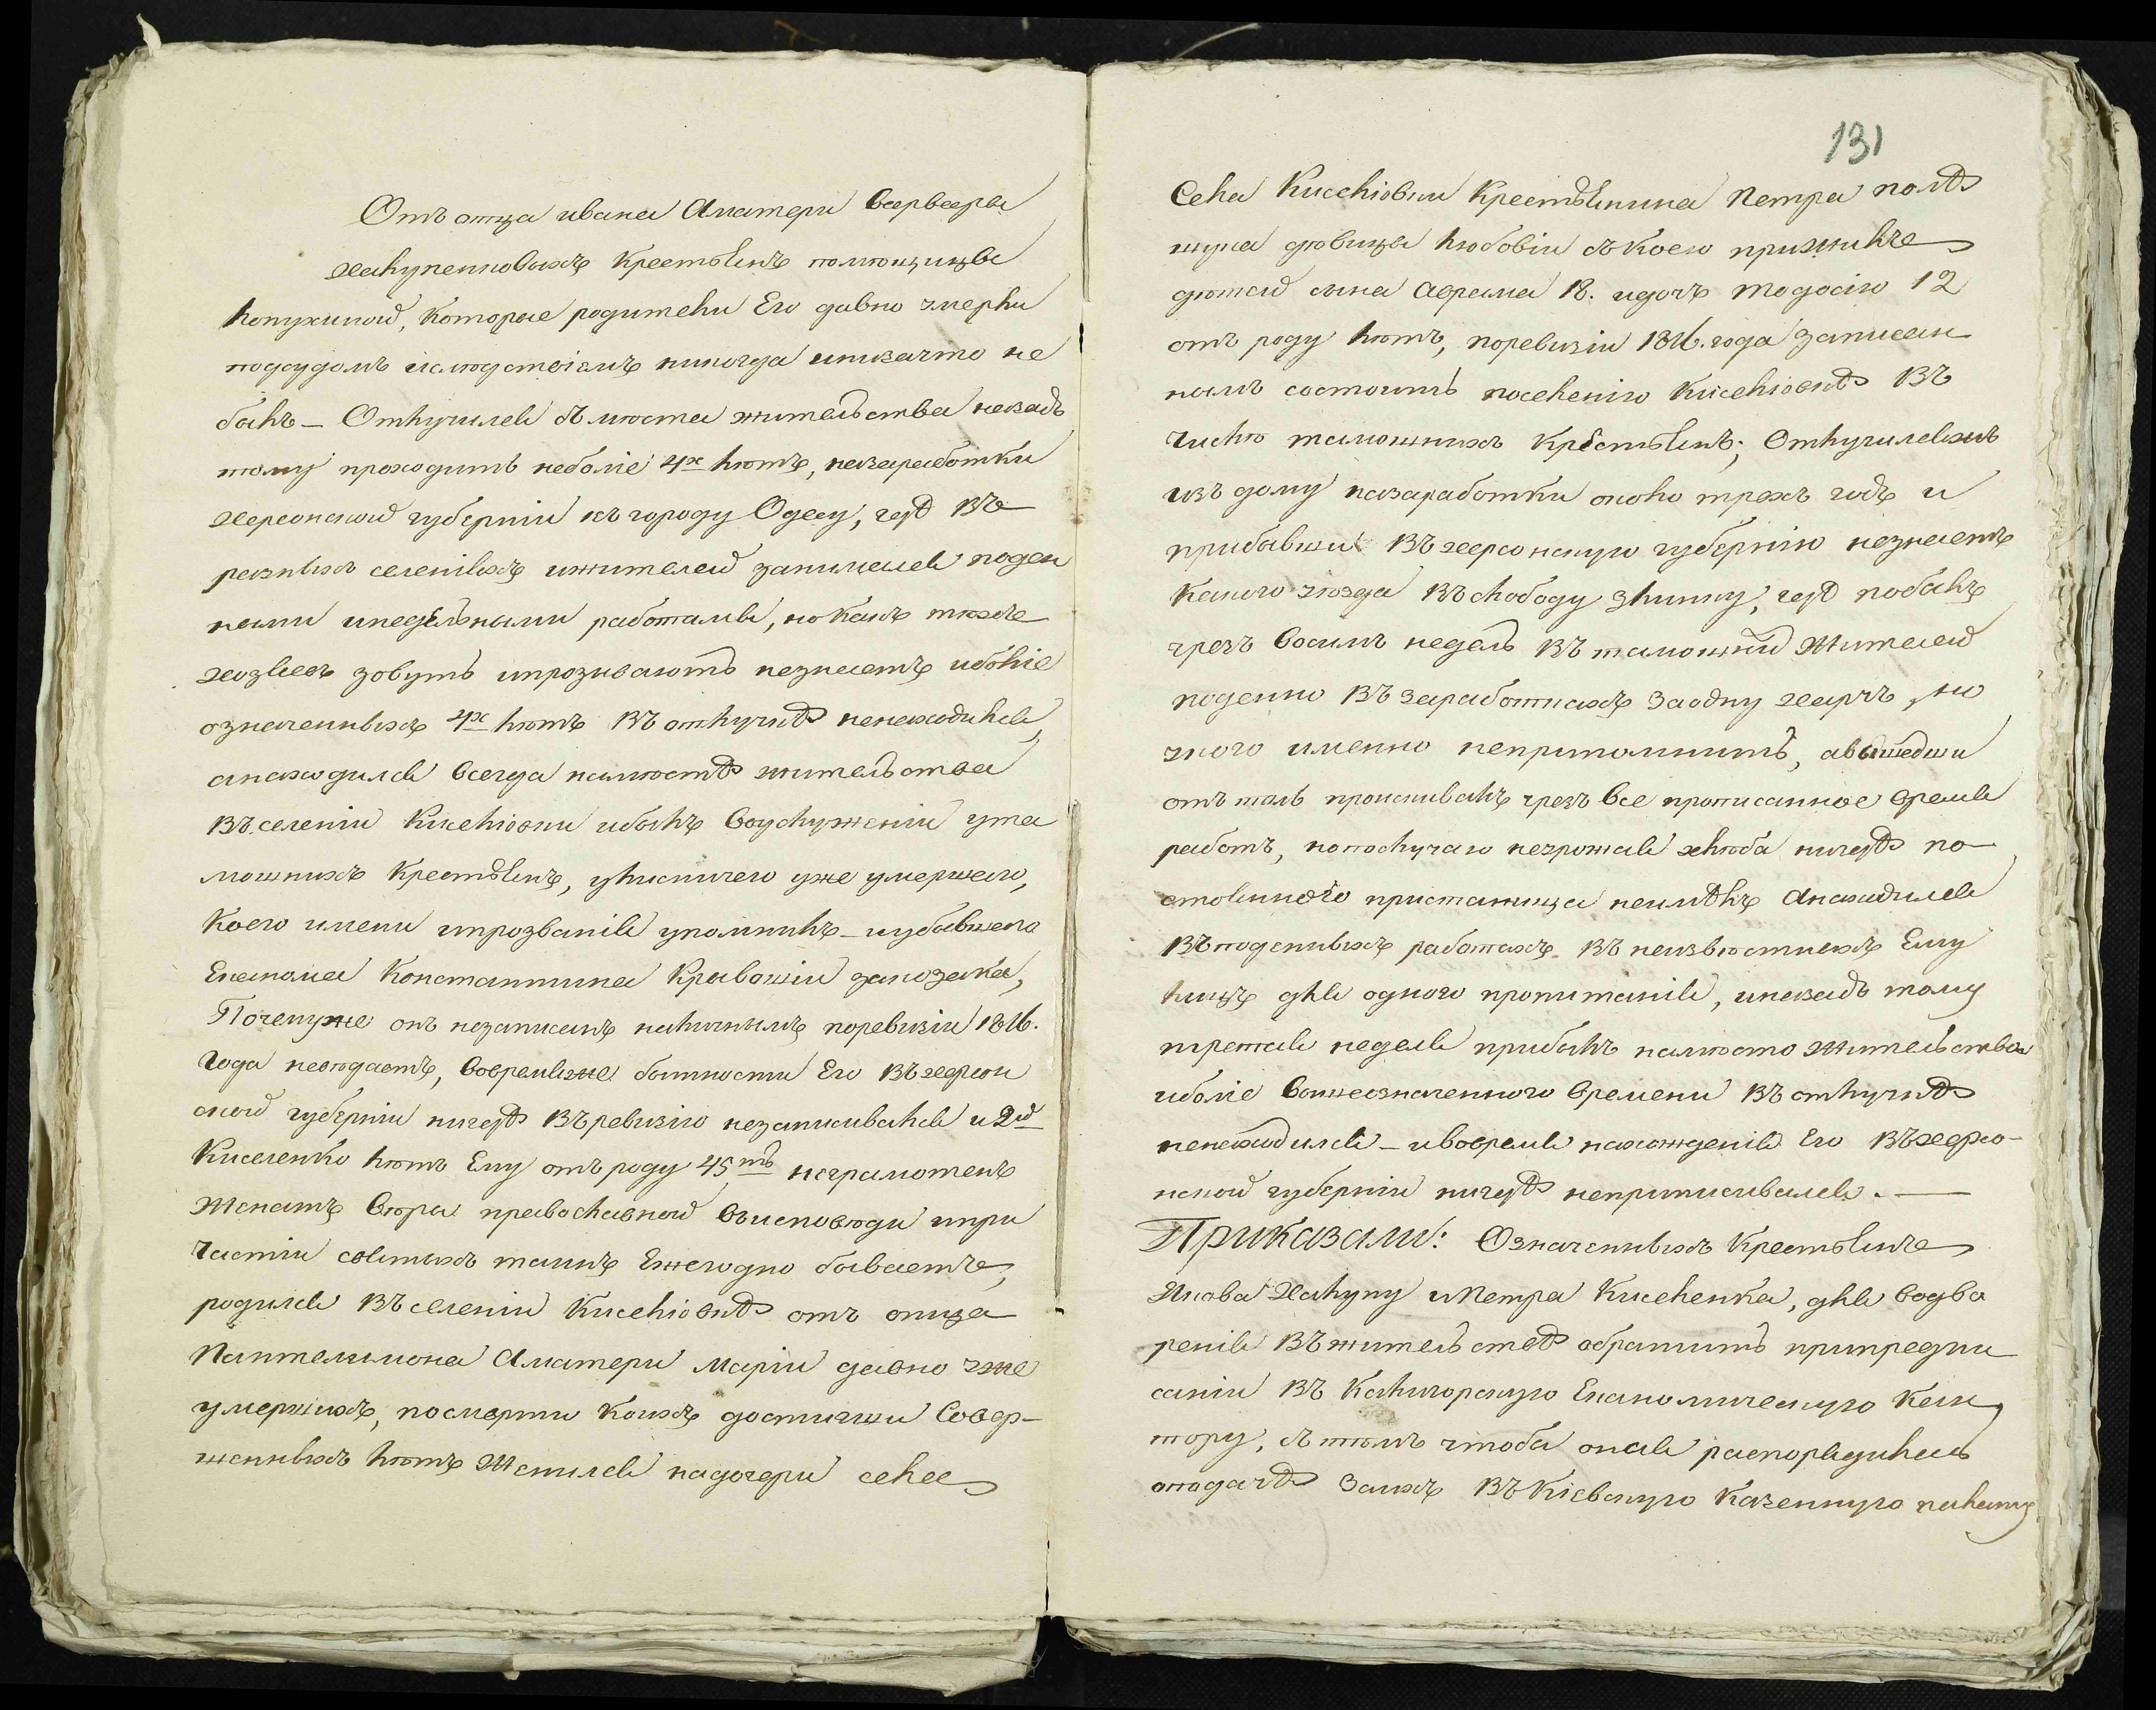 Отъ отца ивана Аматери Варвары
Халупенковыхъ Крестьянъ помѣщицы
Лопухиной, Которые родители Его давно умерли
подсудомъ ислѣдствіемъ никогда иниза что не
былъ – Отлучился съ мѣста жительства назадъ
тому проходитъ неболіе 4х лѣтъ, назаработки
херсонской губерніи къ городу Одесу, гдѣ въ
разныхъ селеніяхъ ужителей занимался поден
ными инедельными работами, но какъ тѣхъ
хозяевъ зовутъ ипрозиваютъ незнаетъ иболіе
означенныхъ 4х лѣтъ въ отлучкѣ ненаходился,
анаходился всегда намѣстѣ жительства
въ селеніи Киселіовки ибылъ Воуслуженіи ута
мошнихъ Крестьянъ, улисничего уже умершаго,
Коего имени ипрозванія упомнилъ – иубывшего
Економа Константина Кривошіи заказака,
Почемуже онъ незаписанъ наличнымъ поревизіи 1816.
года невѣдаетъ, Вовремяже бытности Его въ херсон
ской губерніи нигдѣ въ ревизію незаписивался и 2й
Киселенко лѣтъ Ему отъ роду 45ть неграмотенъ
Женатъ вѣры православной въисповѣди ипри
частіи святыхъ таинъ Ежегодно бываетъ,
родился въ селеніи Киселіовкѣ отъ отца
Пантелимона Аматери Маріи давно уже
умершихъ, посмерти Коихъ достигши Совер–
шенныхъ лѣтъ Женился надочери села
131
Села Киселіовки Крестьянина Петра полѣ
щука дѣвицы Любовіи съ Коею прижилъ
дѣтей сына Аврама 18. идочъ Тодосію 12
отъ роду лѣтъ, поревизіи 1816. года записан
нымъ состоитъ поселенію Киселіовкѣ въ
числѣ тамошнихъ Крестьянъ; Отлучился
изъ дому назаработки около трехъ годъ и
прибывши въ херсонскую губернію незнаетъ
какого уѣзда въ слободу Злинку, гдѣ побылъ
чрезъ Восимъ недель въ тамошній Жителей
поденно въ заработкахъ заодну харчъ, но
укого именно неприпомнитъ, авышедши
отъ толь проискивалъ чрезъ Все прописанное Время
работъ, нопослучаю неурожая хлѣба нигдѣ по–
стояннаго пристанища неимѣлъ Анаходился
въ поденныхъ работахъ въ неизвѣстныхъ Ему
лицъ для одного пропитанія, иназадъ тому
третья неделя прибылъ намѣсто Жительства
иболіе Вышеозначенного Времени въ отлучкѣ
ненаходился – ивовремя нахожденія Его въ херсо–
нской губерніи нигдѣ неприписивался. —
Приказали: Означенныхъ Крестьянъ
Якова Халупу иПетра Киселенка, для водво
ренія въ жительствѣ обратить припредпи
саніи въ Калигорскую Економическую Кан
тору, съ тѣмъ чтобы оная распорядилась
отдачѣ Заихъ въ Кіевскую Казенную палату